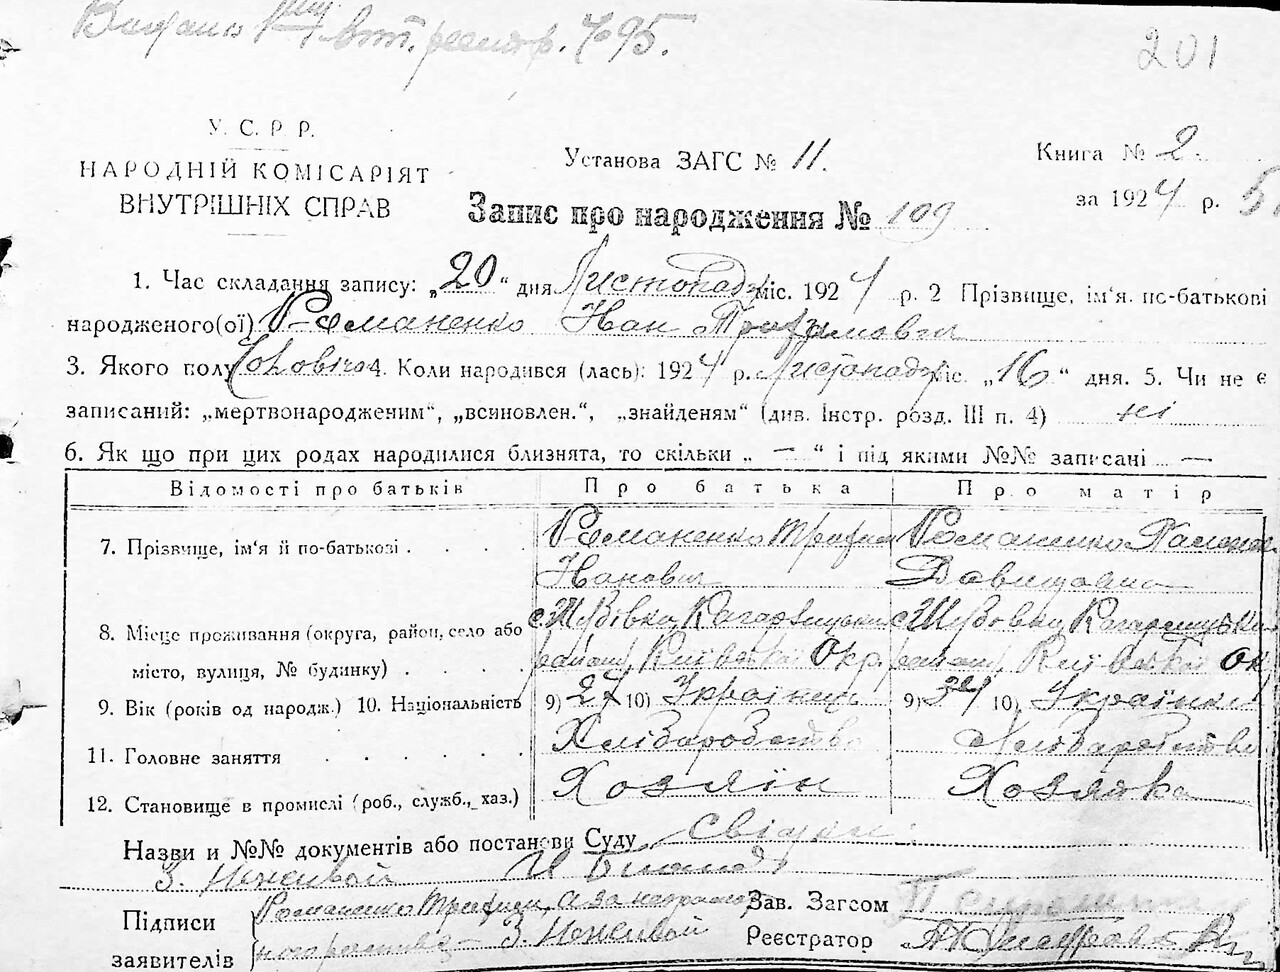 Видано втор. № 95.
201
У. С. Р. Р.
НАРОДНІЙ КОМІСАРІЯТ
ВНУТРІШНІХ СПРАВ
Установа ЗАГС № 11.
Книга № 2
за 1924 р.
Запис про народження № 109
1. Час складання запису: „20“ дня Листопада міс. 1924 р. 2 Прізвище, ім'я, по-батькові
народженого(ої) Романенко Иван Трофимович
3. Якого полу Чоловіч 4. Коли народився (лась): 1924 р. Листопада міс. „16“ дня. 5. Чи не є
записаний: „мертвонародженим“, „всиновлен.“, „знайденям“ (див. Інстр. розд. III п. 4) ні
6. Як що при цих родах народилися близнята, то скільки „ — “ і під якими №№ записані —
Відомості про батьків Про батька Про матір
7. Прізвище, ім'я й по-батькові Романенко Трофим Романенко
Иванович Давидовна
8. Місце проживання (округа, район, село або с. Шубівка Кагарлицьким с. Шубовка Кагарлицьким
місто, вулиця, № будинку) району Київської Окр. району Київської Ок
9. Вік (років од народж.) 10. Національність 9) 27 10) Українець 9) 10) Українка
11. Головне заняття Хліборобство Хліборобство
12. Становище в промислі (роб., служб., хаз.) Хозяїн Хозяйка
Назви и №№ документів або постанови Суду Свідки:
З. Неживой И
Підписи Романенко Трофим, а за неграмотн
заявителів З. Неживой
Зав. Загсом
Реєстратор